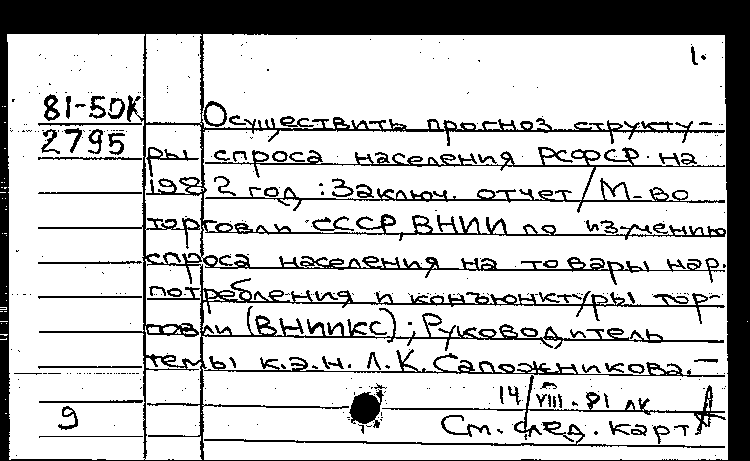 1.
81-50К
2795
Осуществить прогноз структу-
ры спроса населения РСФСР на
1982 год : Заключ. отчет / М-во
торговли СССР, ВНИИ по изучению
спроса населения на товары нар.
потребления и конъюнктуры тор-
говли (ВНИИКС) ; Руководитель
темы к.э.н. Л.К. Сапожникова. —
14/VIII-81 лк
9
См. след. карт